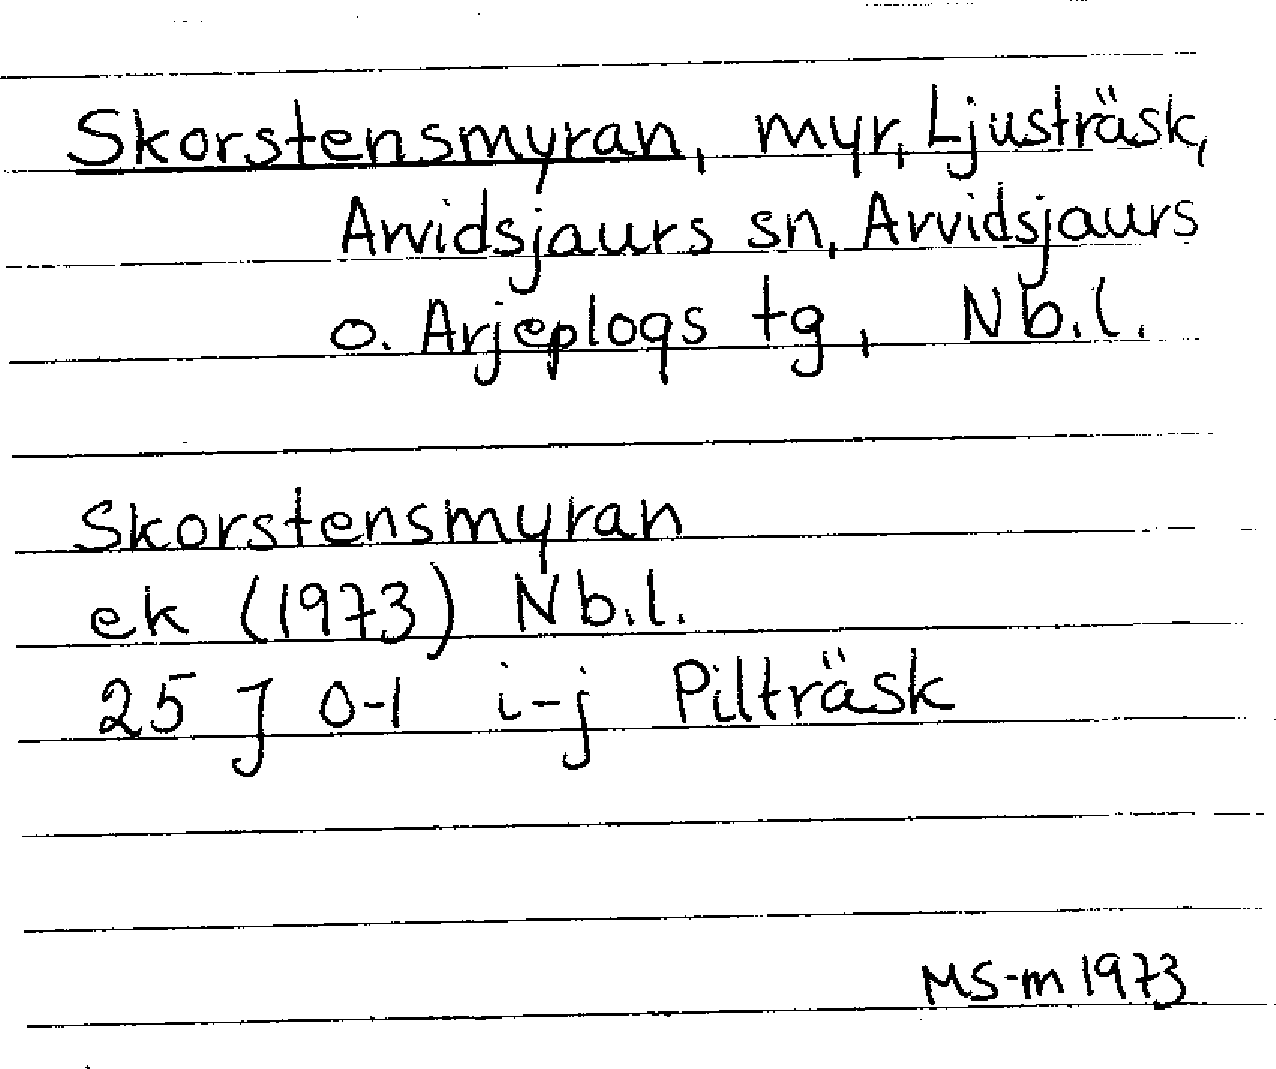 Skorstensmyran, myr, Ljusträsk,
Arvidsjaurs sn, Arvidsjaurs
o. Arjeplogs tg, Nb.l.
Skorstensmyran
ek (1973) Nb.l.
25 J 0-1 i-j Pilträsk
MS-m 1973